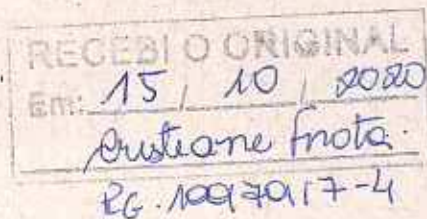 RECEBI O ORIGINAL
Em: 15 / 10 / 2020
Cristiane Frota.
RG.